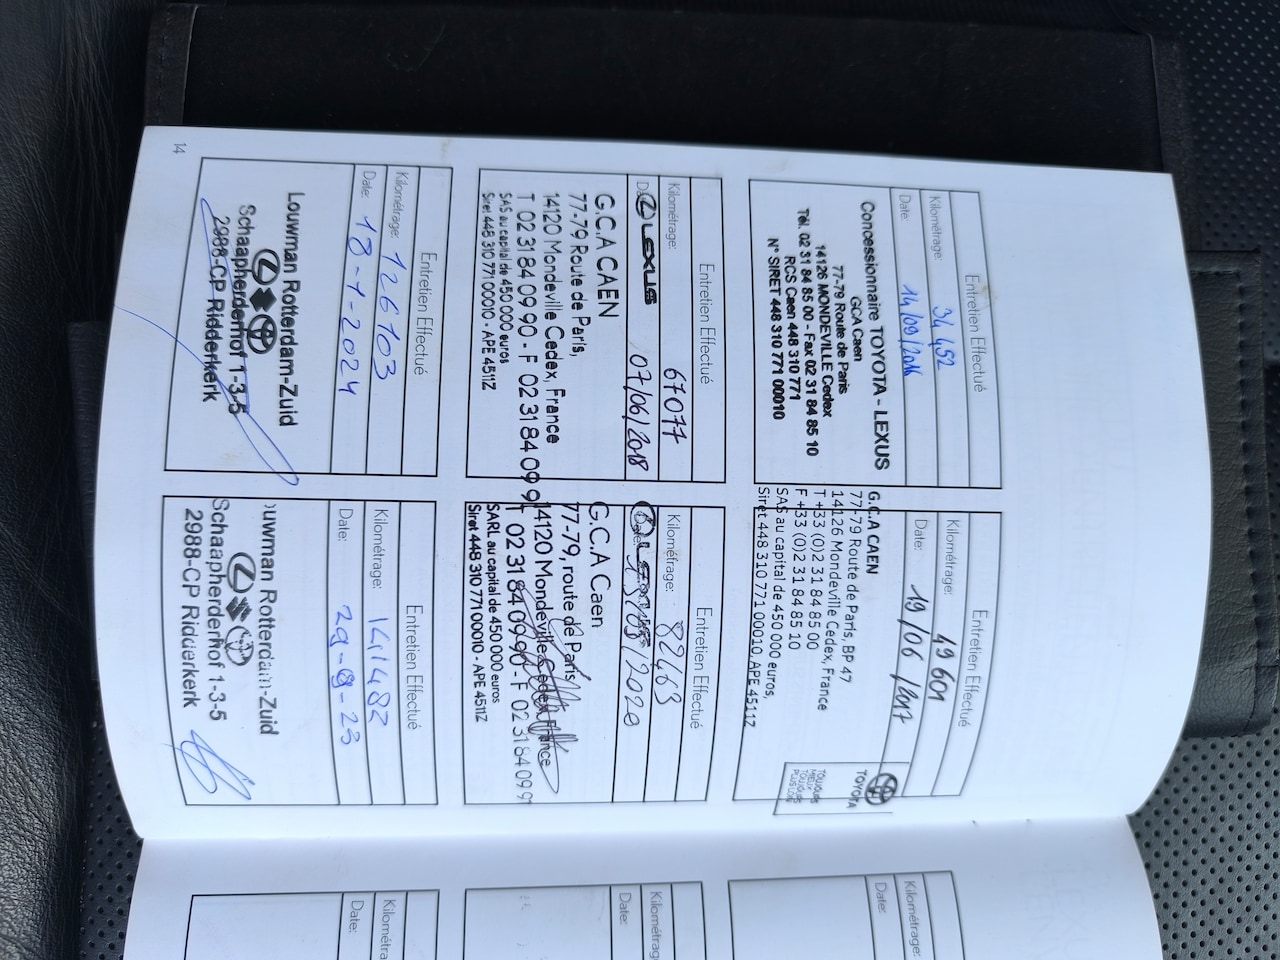 Entretien Effectué
Kilométrage: 34 452
Date: 14/09/2016
Concessionnaire TOYOTA - LEXUS
GCA Caen
77-79 Route de Paris
14126 MONDEVILLE Cedex
Tél. 02 31 84 85 00 - Fax 02 31 84 85 10
RCS Caen 448 310 771
N° SIRET 448 310 771 00010
Entretien Effectué
Kilométrage: 49 601
Date: 19/06/2017
G.C.A CAEN
77-79 Route de Paris, BP 47
14126 Mondeville Cedex, France
T +33 (0)2 31 84 85 00
F +33 (0)2 31 84 85 10
SAS au capital de 450 000 euros,
Siret 448 310 771 00010, APE 4511Z
TOYOTA
TOUJOURS
MIEUX
TOUJOURS
PLUS LOIN
Entretien Effectué
Kilométrage: 67077
LEXUS 07/06/2018
G.C.A CAEN
77-79 Route de Paris,
14120 Mondeville Cedex, France
T 02 31 84 09 90 - F 02 31 84 09 91
SAS au capital de 450 000 euros
Siret 448 310 771 00010 - APE 4511Z
Entretien Effectué
Kilométrage: 82463
Date: 2020
G.C.A Caen
77-79, route de Paris,
14120 Mondeville Cedex, France
T 02 31 84 09 90 - F 02 31 84 09 91
SARL au capital de 450 000 euros
Siret 448 310 771 00010 - APE 4511Z
Entretien Effectué
Kilométrage: 126103
Date: 18-1-2024
Louwman Rotterdam-Zuid
Schaapherderhof 1-3-5
2988-CP Ridderkerk
Entretien Effectué
Kilométrage: 141482
Date: 29-8-23
ouwman Rotterdam-Zuid
Schaapherderhof 1-3-5
2988-CP Ridderkerk
14
Kilométrage:
Date:
Kilométrag
Date:
Kilométra
Date: